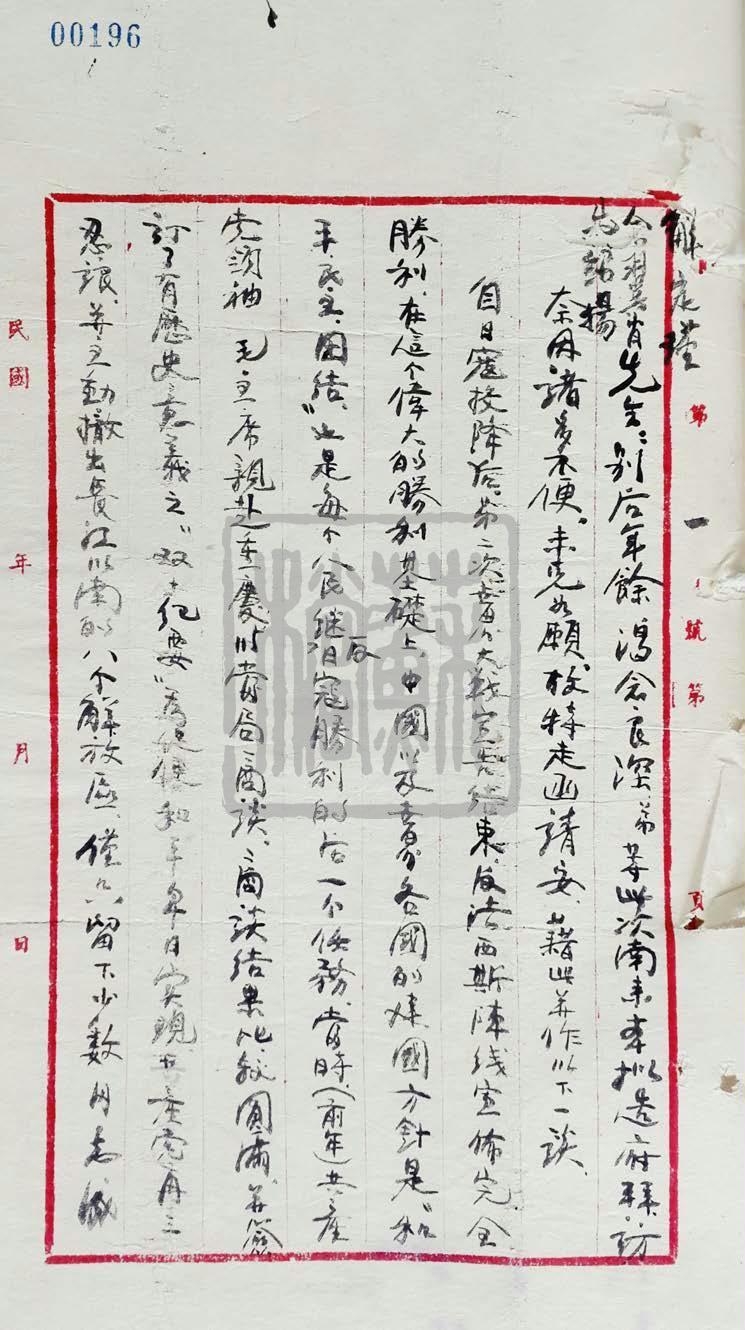 00196
第一號第 頁
先生：別后年餘渴念良深，弟等此次南來本拟造府拜訪
奈因諸多不便，未克如願，故特走函請安，藉此并作以下一談、
自日寇投降后，第二次世界大戰宣告結束，反法西斯陣线宣佈完全
勝利，在這个偉大的勝利基礎上，中國以及世界各國的建國方針是“和
平、民主、團結、”也是每个人民继反日寇勝利的后一个任務，當時（前年）共產
党領袖 毛主席親赴重慶以當局商談，商談結果比較圓滿，并簽
訂了有歷史意義之“双十纪要”為促使和平早日实現，共產党再三
忍讓，并主動撤出長江以南的八个解放區，僅只留下少數同志
民國 年 月 日